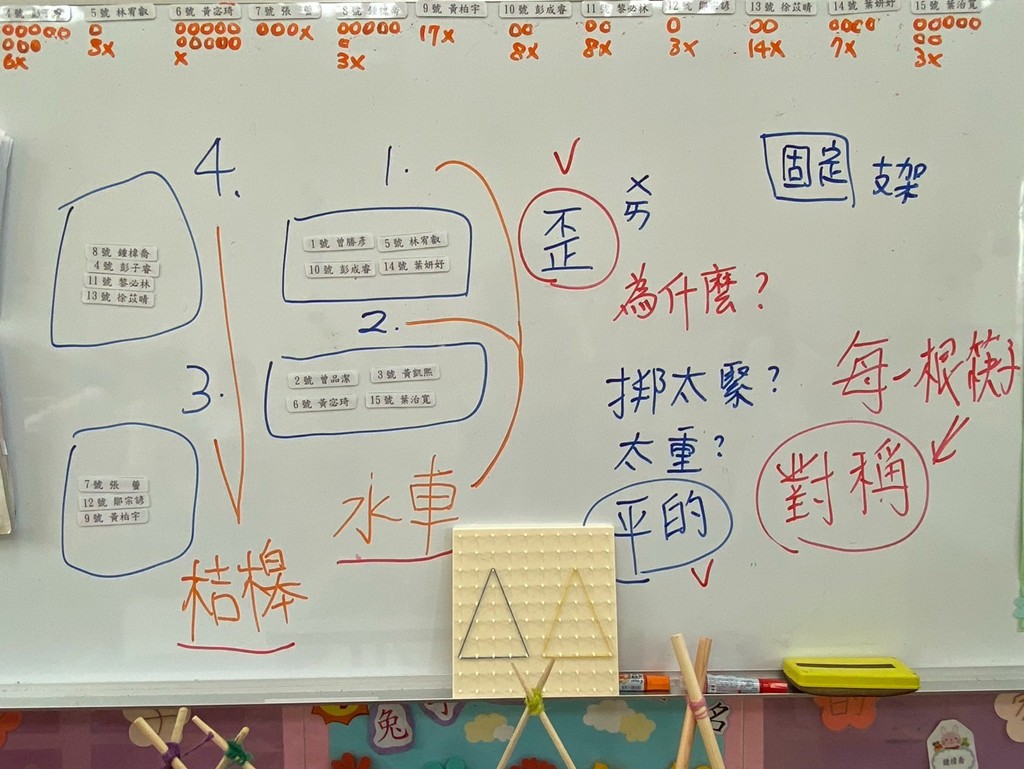 5號 林宥叡
6號 黃宓琦
7號 張
9號 黃柏宇
10號 彭成睿
11號 黎必林
13號 徐苡晴
14號 葉妍妤
15號 葉治寬
6x
3x
x
x
3x
17x
8x
8x
3x
14x
7x
3x
4.
1.
8號 鍾樟喬
4號 彭子睿
11號 黎必林
13號 徐苡晴
1號 曾勝彥
5號 林宥叡
10號 彭成睿
14號 葉妍妤
2.
2號 曾品潔
3號 黃凱熙
6號 黃宓琦
15號 葉治寬
3.
7號 張
12號 鄒宗諺
9號 黃柏宇
水車
桔槔
V
歪
ㄨㄞ
為什麼?
固定 支架
綁太緊?
太重?
平的
V
每一根筷子
對稱
兔